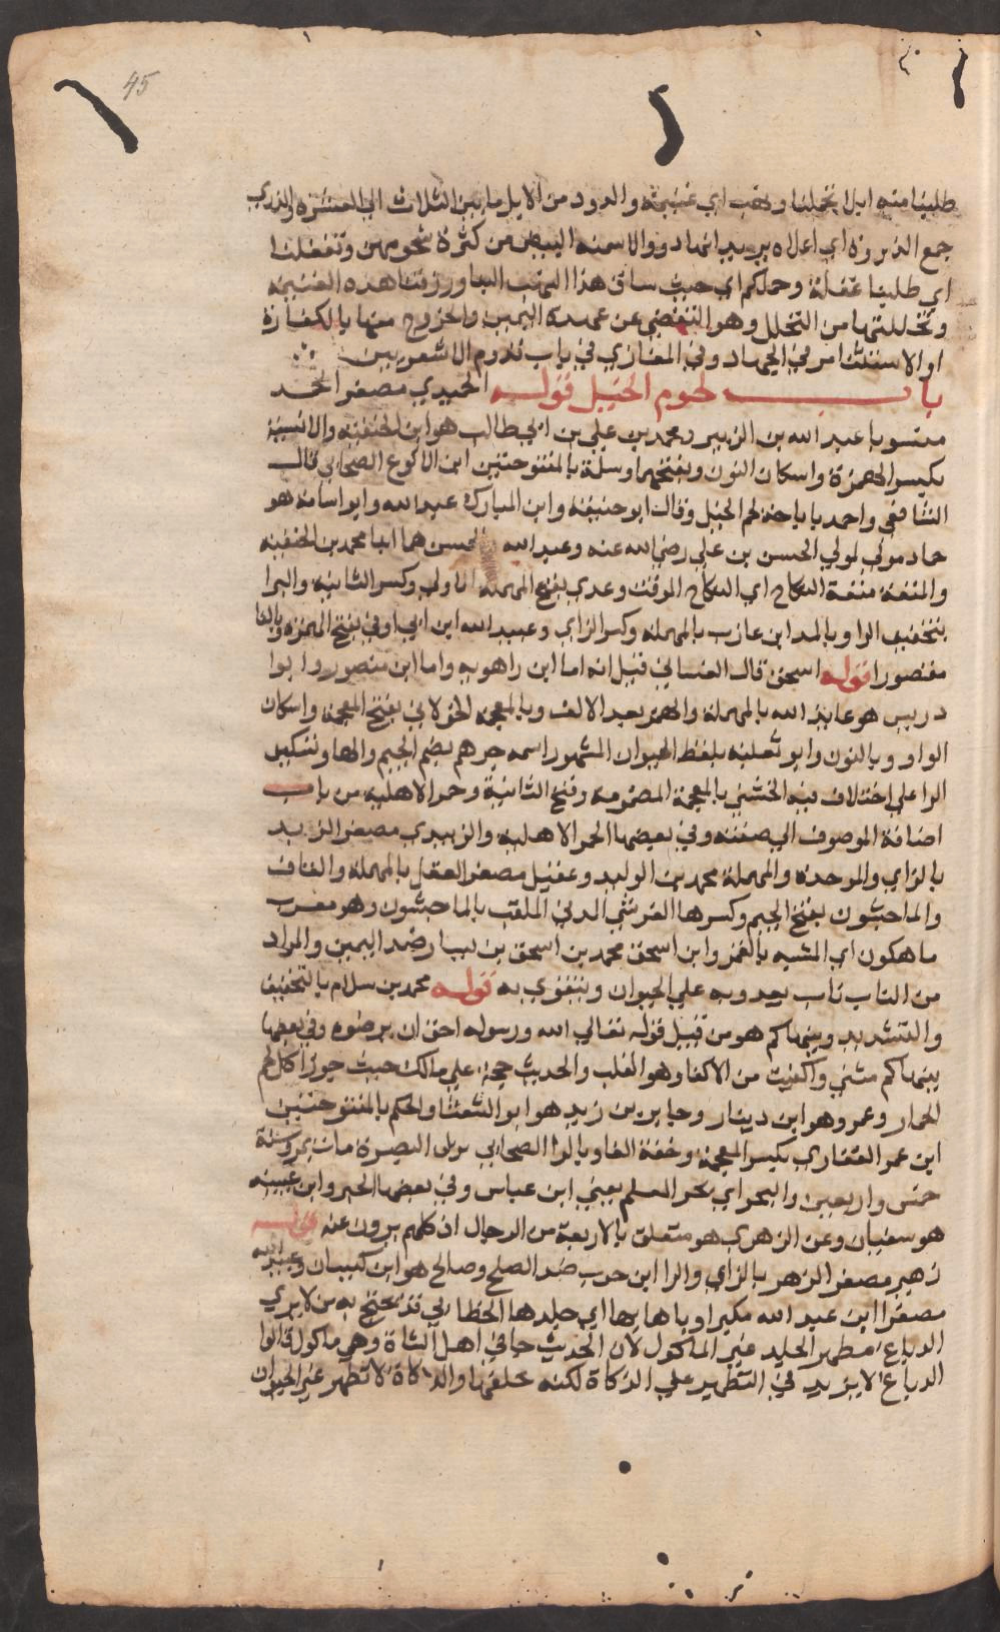 45
طلبنا منه ابلا تحملنا ونهب اي غنيمة والذود من الابل ما بين الثلاث الى العشرة والذري
جمع الذروة اي اعلاه يريد انها ذوو الاسنمة البيض من كثرة شحومهن وتغفلنا
اي طلبنا غفلة وحملكم اي حيث ساق هذا النهب الينا ورزقنا هذه الغنيمة
وتحللتها من التحلل وهو التفصي عن عهدة اليمين والخروج منها بالكفارة
او الاستثنا مر في الجهاد وفي المغازي في باب قدوم الاشعريين
باب لحوم الخيل قوله الحميدي مصغر الحمد
منسوبا عبد الله بن الزبير ومحمد بن علي بن ابي طالب هو ابن الحنفية والانسية
بكسر الهمزة واسكان النون وبفتحهما وسلمة بالمفتوحتين ابن الاكوع الصحابي قال
الشافعي واحمد باباحة لحم الخيل وقال ابو حنيفة وابن المبارك عبد الله وابو اسامة هو
حماد مولى لمولي الحسن بن علي رضي الله عنه وعبد الله والحسن هما ابنا محمد بن الحنفية
والمتعة متعة النكاح اي النكاح الموقت وعدي بفتح المهملة الاولى وكسر الثانية والبرا
بتخفيف الرا وبالمد ابن عازب بالمهملة وكسر الزاي وعبد الله ابن ابي اوفى بفتح الهمزة وبالفا
مقصورا قوله اسحق قال الغساني قيل انه اما ابن راهويه واما ابن منصور وابوا
دريس هو عايذ الله بالمهملة والهمز بعد الالف وبالمعجمة الخولاني بفتح المعجمة واسكان
الواو وبالنون وابو ثعلبة بلفظ الحيوان المشهور اسمه جرهم بضم الجيم والها وتسكين
الرا على اختلاف فيه الخشني بالمعجمة المضمومة وفتح الثانية وحمر الاهلية من باب
اضافة الموصوف الى صفته وفي بعضها الحمر الاهلية والزبيدي مصغر الزبد
بالزاي والموحدة والمهملة محمد بن الوليد وعقيل مصغر العقل بالمهملة والقاف
والماجشون بفتح الجيم وكسرها القرشي المدني الملقب بالماجشون وهو معرب
ماهكون اي المشبه بالقمر وابن اسحق محمد بن اسحق بن يسار ضد اليمين والمراد
من الناب ناب يعدو به على الحيوان ويتقوى به قوله محمد بن سلام بالتخفيف
والتشديد وينهاكم هو من قبيل قوله تعالى الله ورسوله احق ان يرضوه وفي بعضها
ينهياكم مثنى واكفيت من الاكفا وهو القلب والحديث حجة على مالك حيث جوز اكل لحم
الحمار وعمرو هو ابن دينار وجابر بن زيد هو ابو الشعثا والحكم بالمفتوحتين
ابن عمر الغفاري بكسر المعجمة وخفة الفا وبالرا الصحابي نزيل البصرة مات بمرو سنة
خمس واربعين والبحر اي بحر العلم يعني ابن عباس وفي بعضها الحبر وابن عيينة
هو سفيان وعن الزهري هو متعلق بالاربعة من الرجال اذ كلهم يروون عنه قوله
زهير مصغر الزهر بالزاي والرا ابن حرب ضد الصلح وصالح هو ابن كيسان وعبيد الله
مصغرا ابن عبد الله مكبرا وباهابها اي جلدها الخطابي قد يحتج به من لا يرى
الدباغ مطهر الجلد غير الماكول لان الحديث جا في اهل الشاة وهي ماكولة قالوا
الدباغ لا يزيد في التطهير على الذكاة لكنه خلفها والذكاة لا تطهر غير الحيوان